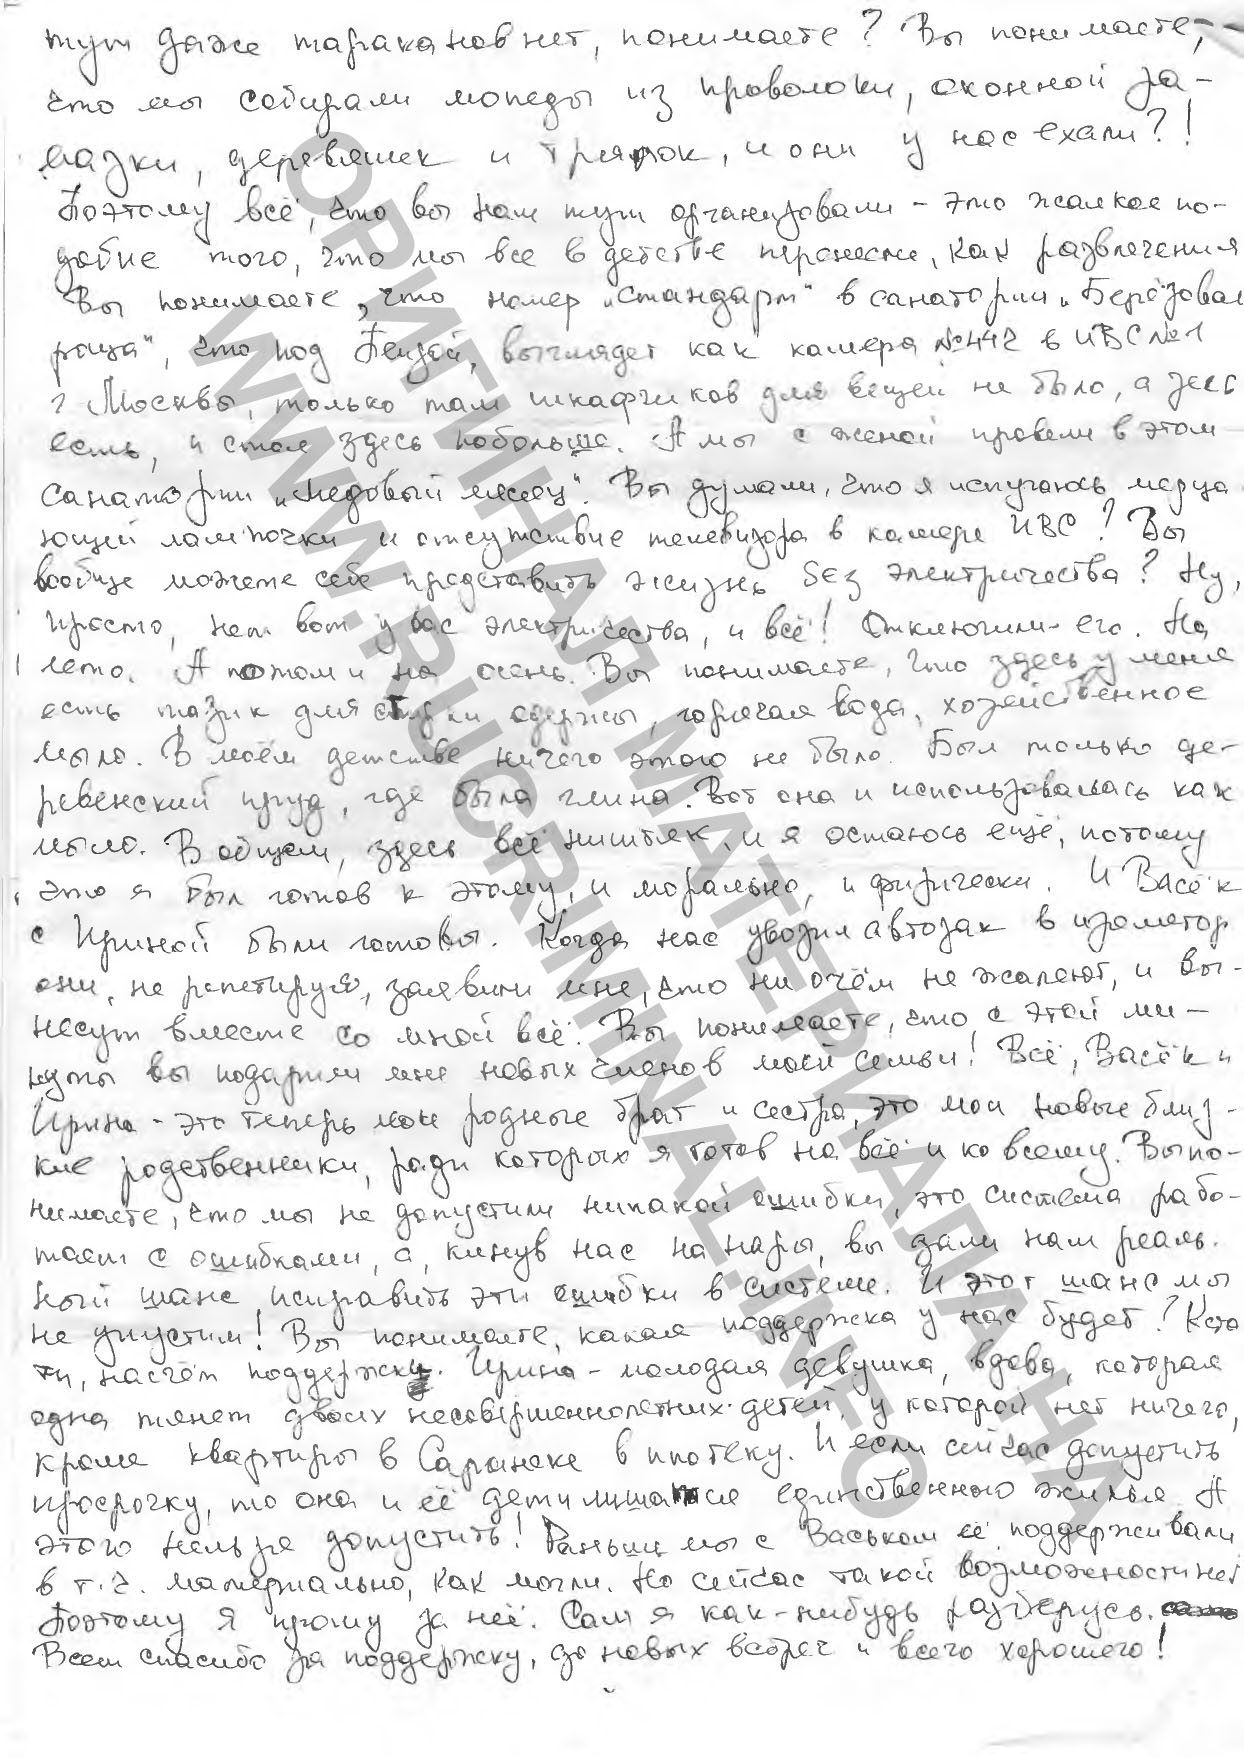 тут даже тараканов нет, понимаете? Вы понимаете,
что мы собирали мопеды из проволоки, оконной за-
мазки, деревяшек и тряпок, и они у нас ехали?!
Поэтому всё, что вы нам тут организовали - это жалкое по-
добие того, что мы все в детстве перенесли, как развлечения
Вы понимаете, что номер „стандарт" в санатории „Берёзовая
роща", что под Пензой, выглядет как камера №442 в ИВС №1
г Москвы, только там шкафчиков для вещей не было, а здесь
есть, и стол здесь побольше. А мы с женой провели в этом
санатории „медовый месяц". Вы думали, что я испугаюсь мерца
ющей лампочки и отсутствие телевизора в камере ИВС? Вы
вообще можете себе представить жизнь без электричества? Ну,
просто, нет вот у вас электричества, и всё! Отключили его. На
лето. А потом и на осень. Вы понимаете, что здесь у меня
есть тазик для стирки одежды, горячая вода, хозяйственное
мыло. В моём детстве ничего этого не было. Был только де-
ревенский пруд, где была глина. Вот она и использовалась как
мыло. В общем, здесь всё ништяк, и я остаюсь ещё, потому
что я был готов к этому, и морально, и физически. И Васёк
с Ириной были готовы. Когда нас увозил автозак в изолятор
они, не репетируя, заявили мне, что ни о чём не жалеют, и вы-
несут вместе со мной всё. Вы понимаете, что с этой ми-
нуты вы подарили мне новых членов моей семьи! Всё, Васёк и
Ирина - это теперь мои родные брат и сестра, это мои новые близ-
кие родственники, ради которых я готов на всё и ко всему. Вы по-
нимаете, что мы не допустили никакой ошибки, это система рабо-
тает с ошибками, а, кинув нас на нары, вы дали нам реаль-
ный шанс исправить эти ошибки в системе. И этот шанс мы
не упустим! Вы понимаете, какая поддержка у нас будет? Кста
ти, насчёт поддержки. Ирина - молодая девушка, вдова, которая
одна тянет двоих несовершеннолетних детей, у которой нет ничего,
кроме квартиры в Саранске в ипотеку. И если сейчас допустить
просрочку, то она и её дети лишатся единственного жилья. А
этого нельзя допустить! Раньше мы с Васьком её поддерживали
в т.ч. материально, как могли. Но сейчас такой возможности нет
Поэтому я прошу за неё. Сам я как-нибудь разберусь.
Всем спасибо за поддержку, до новых встреч и всего хорошего!
ОРИГИНАЛ МАТЕРИАЛА НА
WWW.RUCRIMINAL.INFO